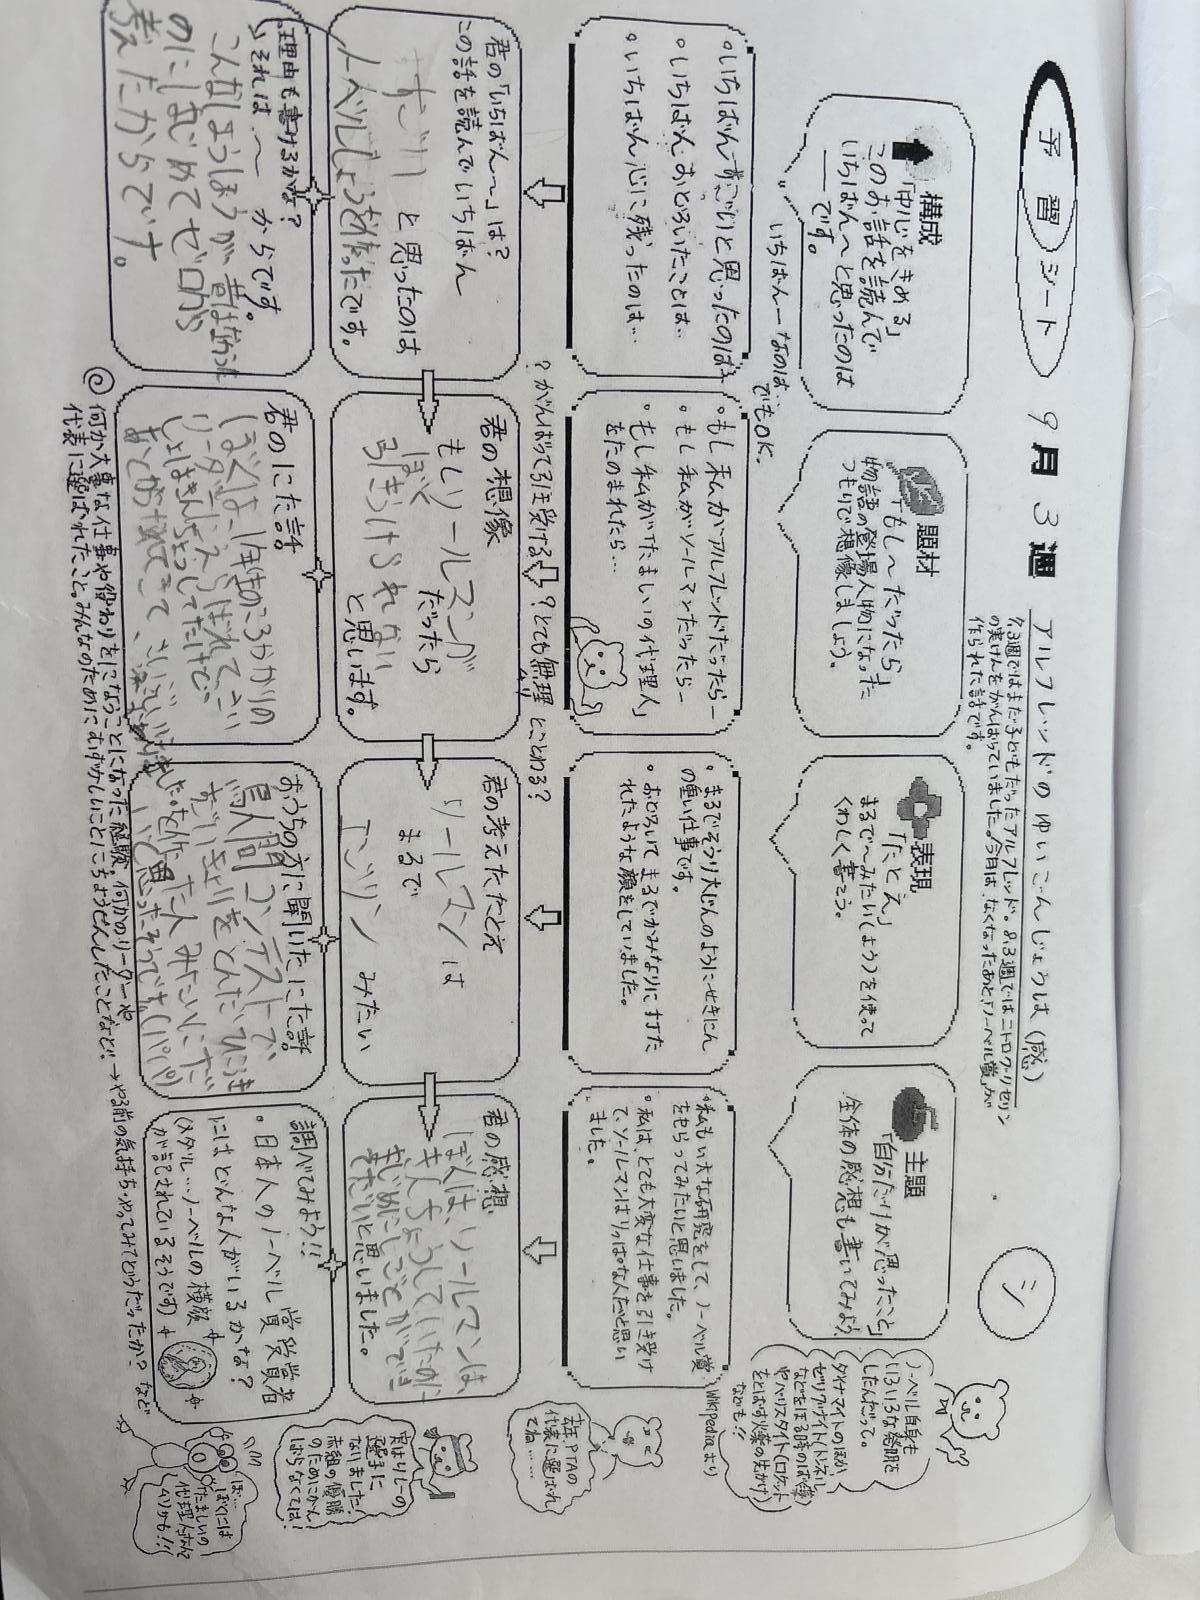 予習シート
9月3週
アルフレッドのゆいごんじょうは(感)
7,3週ではまだ子どもだったアルフレッド。8,3週ではニトログリセリン
の実けんをがんばっていました。今月は、なくなったあと「ノーベル賞」が
作られた話です。
シ
構成
「中心をきめる」
このお話を読んで
いちばん〜と思ったのは
──です。
いちばん──なのは…
でもOK.
題材
「もし〜だったら」
物語の登場人物になった
つもりで想像しましょう。
表現
「たとえ」
まるで〜みたい(ような)を使って
くわしく書こう。
主題
「自分だけが思ったこと」
全体の感想も書いてみよう
ノーベル自身も
いろいろな発明を
したんだって。
ダイナマイトのほか
ゼリグナイト(トンネル
などをほる時のばく薬)
やバリスタイト(ロケット
をとばす火薬の先がけ)
なども!!
Wikipediaより
・いちばんすごいと思ったのは…
・いちばんおどろいたことは…
・いちばん心に残ったのは…
・もし私がアルフレッドだったら─
・もし私がソールマンだったら─
・もし私が「たましいの代理人」
をたのまれたら…
・まるでそうり大じんのようにせきにん
の重い仕事です。
・おどろいてまるでかみなりに打た
れたような顔をしていました。
・私もい大な研究をして、ノーベル賞
をもらってみたいと思いました。
・私は、とても大変な仕事を引き受け
て、ソールマンはりっぱな人だと思い
ました。
?がんばって引き受ける?とても無理とことわる?
去年、PTAの
代表に選ばれ
てね……
君の「いちばん〜」は?
この話を読んでいちばん
すごい と思ったのは
ノーベルしょうを作ったです。
君の想像
もしソールマンが
だったら
ぼく
引きうけられない
と思います。
君の考えたたとえ
ソールマンは
まるで
ゴブリン みたい
君の感想
ぼくは、ソールマンは、
きんちょうしていたのに
まじめにしごとができて
すごいと思いました。
実はリレーの
選手に
なりました!
赤組の優勝
のためにがん
ばらなくては!
理由も書けるかな?
それは〜からです。
こんなしょうほうが昔は無かった
のにはじめてゼロから
考えたからです。
君のにた話。
ぼくは、1年生のころかかりの
リーダーにえらばれて、さい
しょはきんちょうしてたけど、
おうちの方に聞いたにた話。
鳥人間コンテストで、
すごいきょりをとんだひこうき
を作った人みたいにすご
いと思ったそうです(パパ)
調べてみよう!!
・日本人のノーベル賞受賞者
にはどんな人がいるかな?
(メダル…ノーベルの横顔
が記されているそうです)
何か大事な仕事や役わりをになうことになった経験。何かのリーダーや
代表に選ばれたこと。みんなのためにむずかしいことにちょうせんしたことなど!!→やる前の気持ち・やってみてどうだったか?など
ぼ…
ぼくには
たましいの
代理人なんて
ムリかも!!